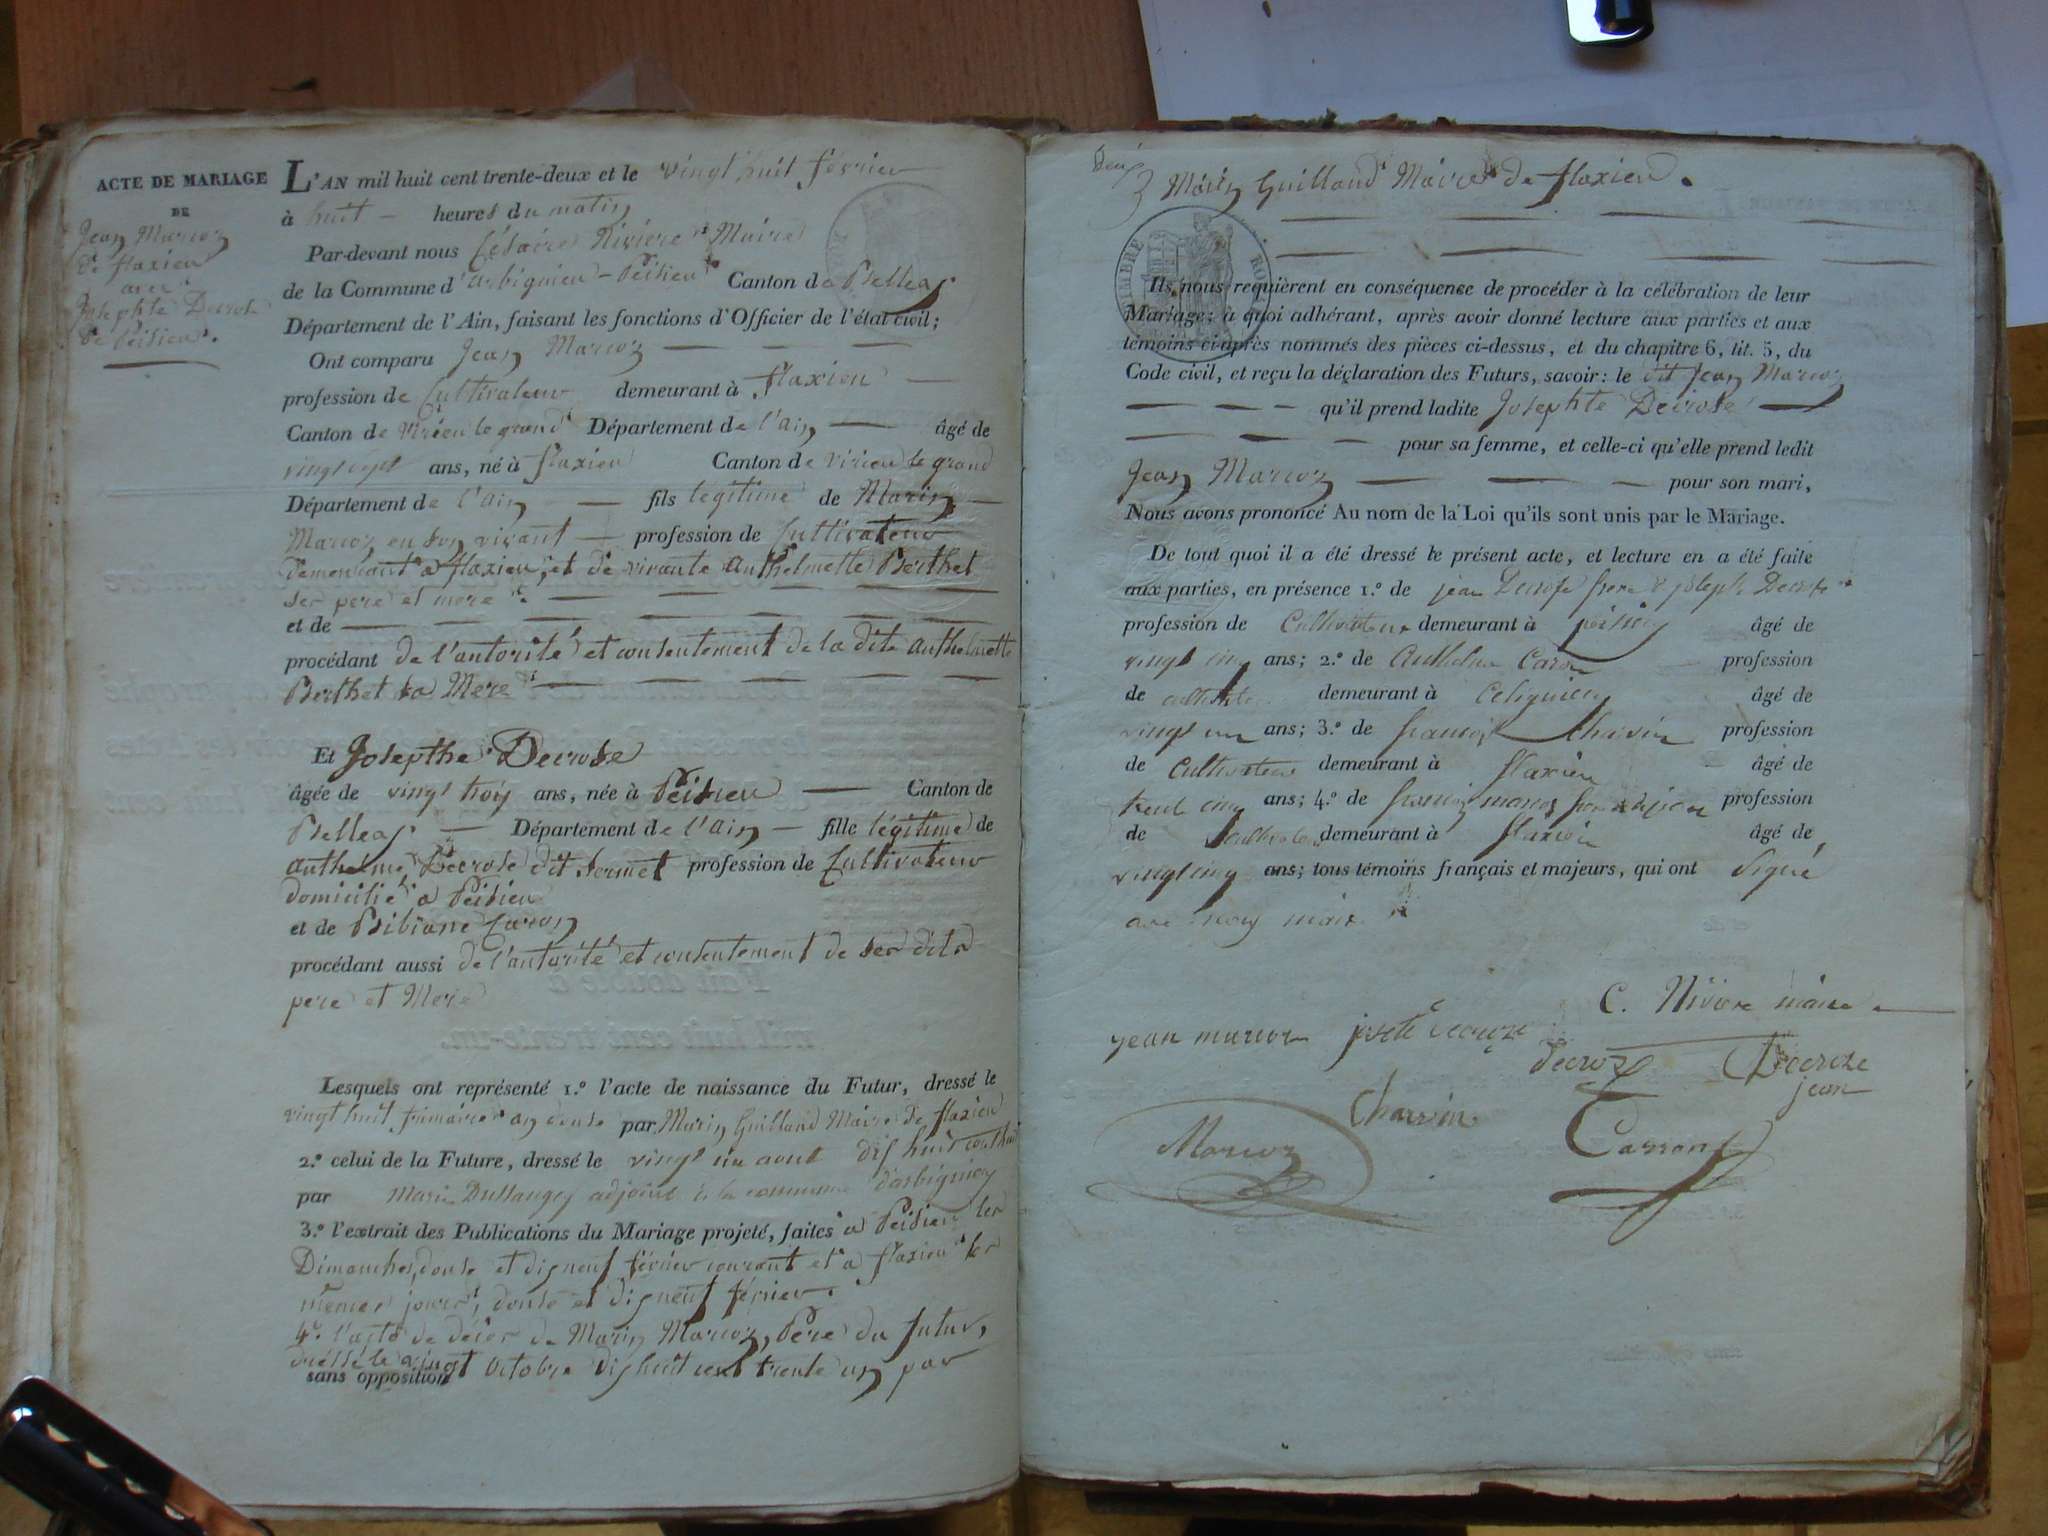 ACTE DE MARIAGE
DE
Jean Marcoz
de flaxieu
avec
Josephte Decrose
de Peisieu.
L'AN mil huit cent trente-deux et le vingt huit février
à huit heures du matin
Par-devant nous Césaire Rivière Maire
de la Commune d'arbignieu-Peisieu Canton de Belley
Département de l'Ain, faisant les fonctions d'Officier de l'état civil;
Ont comparu Jean Marcoz
profession de Cultivateur demeurant à flaxieu
Canton de Virieu le grand Département de l'ain âgé de
vingt sept ans, né à flaxieu Canton de virieu le grand
Département de l'ain fils légitime de Marin
Marcoz en son vivant profession de Cultivateur
demeurant a flaxieu, et de vivante Anthelmette Berthet
ses pere et mere
et de
procédant de l'autorité et consentement de la dite anthelmette
Berthet sa Mere
Et Josepthe Decrose
âgée de vingt trois ans, née à Peisieu Canton de
Belley Département de l'ain fille légitime de
anthelme Decrose dit fermet profession de Cultivateur
domicilié a Peisieu
et de Bibiane Caron
procédant aussi de l'autorité et consentement de ses dits
pere et Mere
Lesquels ont représenté 1.º l'acte de naissance du Futur, dressé le
vingt huit frimaire an douse par Marin Guilland Maire de flaxieu
2.º celui de la Future, dressé le vingt un aout dix huit cent huit
par Marin Dullanges adjoint de la commune d'arbignieu
3.º l'extrait des Publications du Mariage projeté, faites a Peisieu les
Dimanches, douse et dix neuf février courant et a flaxieu les
mêmes jours, douse et dix neuf février.
4º. l'acte de décès de Marin Marcoz, Père du futur,
dressé le vingt Octobre dix huit cent trente un par
sans opposition
Marin Guilland Maire de flaxieu.
TIMBRE ROYAL
Ils nous requièrent en conséquence de procéder à la célébration de leur
Mariage; à quoi adhérant, après avoir donné lecture aux parties et aux
témoins ci-après nommés des pièces ci-dessus, et du chapitre 6, tit. 5, du
Code civil, et reçu la déclaration des Futurs, savoir: le dit Jean Marcoz
qu'il prend ladite Josephte Decrose
pour sa femme, et celle-ci qu'elle prend ledit
Jean Marcoz pour son mari,
Nous avons prononcé Au nom de la Loi qu'ils sont unis par le Mariage.
De tout quoi il a été dressé le présent acte, et lecture en a été faite
aux parties, en présence 1.º de jean Decrose frere a joseph Decrose
profession de Cultivateur demeurant à peisieu âgé de
vingt cinq ans; 2.º de Anthelme Caron profession
de cultivateur demeurant à âgé de
vingt un ans; 3.º de francois Charvin profession
de Cultivateur demeurant à flaxieu âgé de
trent cinq ans; 4.º de francois marcoz frere profession
de Cultivateur demeurant à flaxieu âgé de
vingt cinq ans; tous témoins français et majeurs, qui ont signé
avec nous maire
C. Rivière maire
jean marcoz josette decroze
decroze Decroze
jean
Charvin
Marcoz Carron